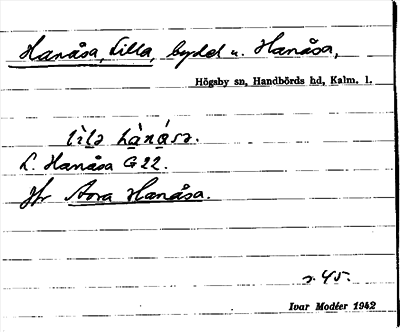 Hanåsa, Lilla, bydel u. Hanåsa,
Högsby sn, Handbörds hd, Kalm. l.
lìlə hànásə.
L. Hanåsa G 22.
Jfr Stora Hanåsa.
s. 45.
Ivar Modéer 1942